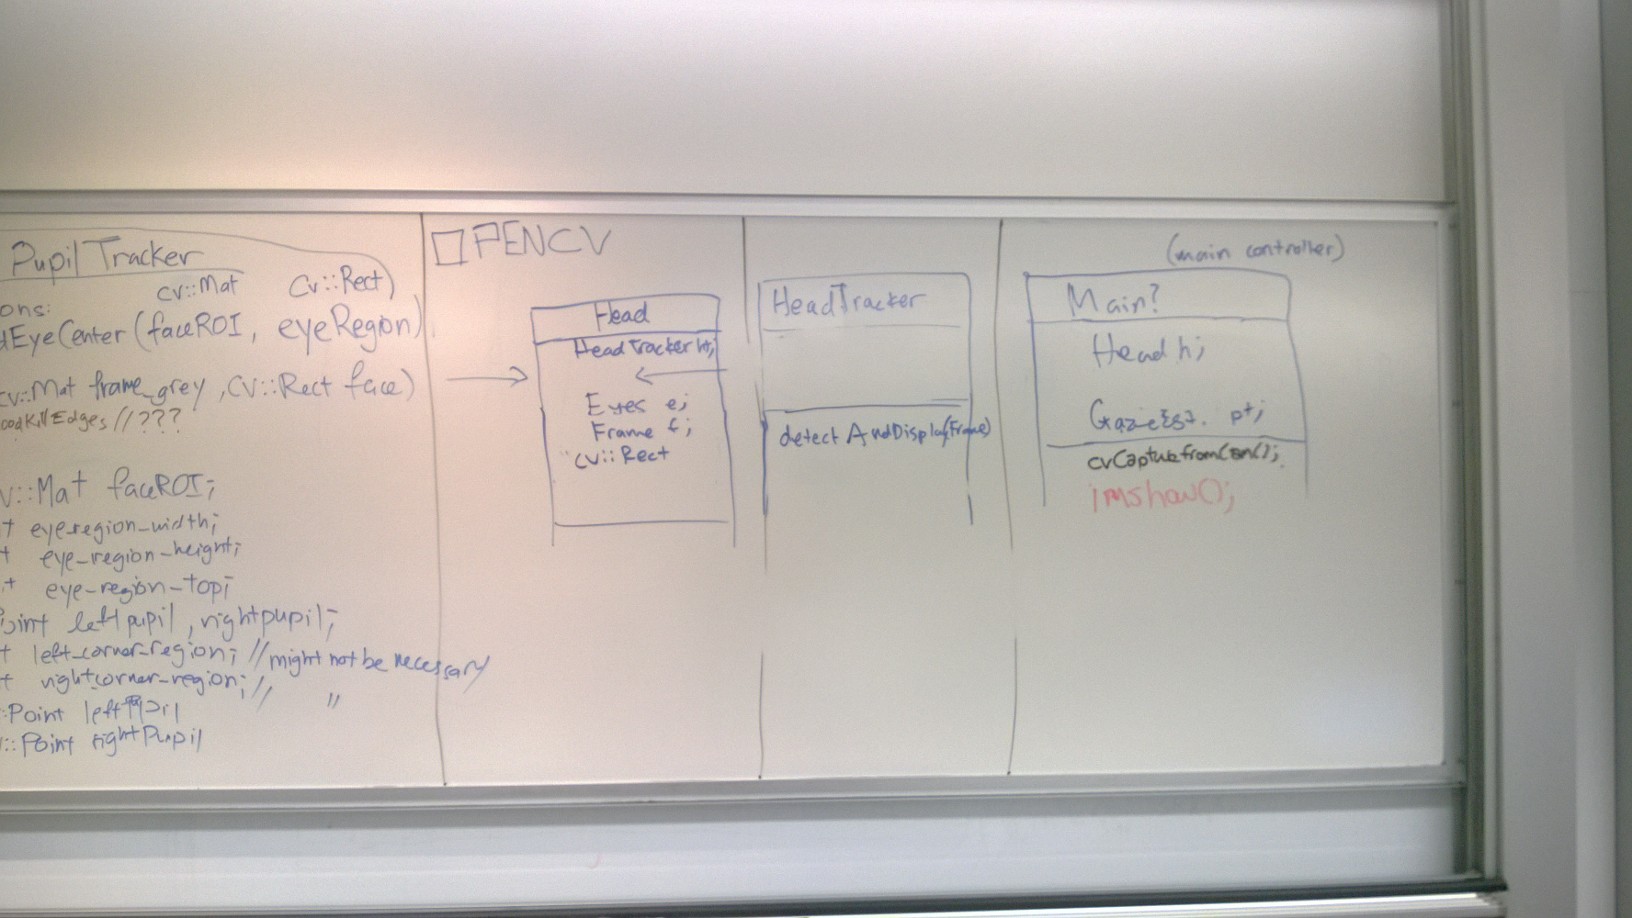 Pupil Tracker
cv::Mat cv::Rect)
ons:
dEyeCenter (faceROI, eyeRegion)
cv::Mat frame_grey, cv::Rect face)
oodKillEdges //???
v::Mat faceROI;
t eye_region_width;
t eye_region_height;
t eye_region_top;
oint leftpupil, rightpupil;
t left_corner_region; // might not be necessary
t right_corner_region; // "
:Point left
::Point rightPupil
OPENCV
Head
HeadTracker ht;
Eyes e;
Frame f;
cv::Rect
HeadTracker
detectAndDisplay(Frame)
(main controller)
Main?
Head h;
pt;
imshow();